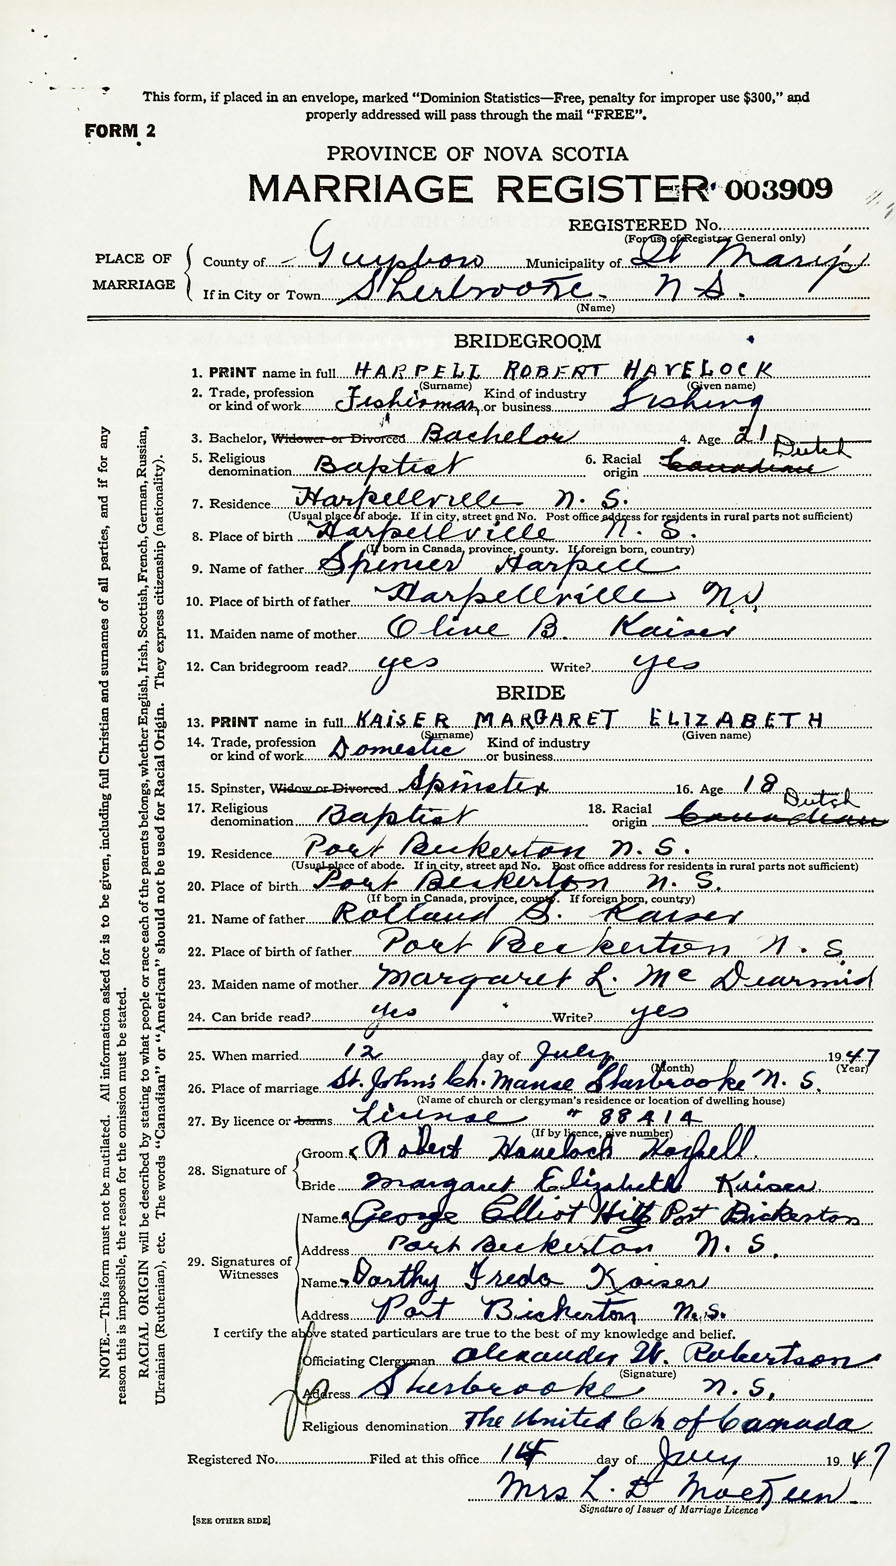 This form, if placed in an envelope, marked “Dominion Statistics—Free, penalty for improper use $300,” and
properly addressed will pass through the mail “FREE”.
FORM 2
PROVINCE OF NOVA SCOTIA
MARRIAGE REGISTER 003909
REGISTERED No.
(For use of Registrar General only)
PLACE OF MARRIAGE
County of Guysboro Municipality of St Mary's
If in City or Town Sherbrooke. N S.
(Name)
BRIDEGROOM
1. PRINT name in full HARPELL ROBERT HAVELOCK
(Surname) (Given name)
2. Trade, profession or kind of work Fisherman Kind of industry or business Fishing
3. Bachelor, Widower or Divorced Bachelor 4. Age 21
5. Religious denomination Baptist 6. Racial origin Canadian Dutch
7. Residence Harpellville N. S.
(Usual place of abode. If in city, street and No. Post office address for residents in rural parts not sufficient)
8. Place of birth Harpellville N. S.
(If born in Canada, province, county. If foreign born, country)
9. Name of father Spenser Harpell
10. Place of birth of father Harpellville N.S.
11. Maiden name of mother Olive B. Kaiser
12. Can bridegroom read? yes Write? yes
BRIDE
13. PRINT name in full KAISER MARGARET ELIZABETH
(Surname) (Given name)
14. Trade, profession or kind of work Domestic Kind of industry or business
15. Spinster, Widow or Divorced Spinster 16. Age 18
17. Religious denomination Baptist 18. Racial origin Canadian Dutch
19. Residence Port Beckerton N. S.
(Usual place of abode. If in city, street and No. Post office address for residents in rural parts not sufficient)
20. Place of birth Port Beckerton N. S.
(If born in Canada, province, county. If foreign born, country)
21. Name of father Rolland S. Kaiser
22. Place of birth of father Port Beckerton N. S.
23. Maiden name of mother Margaret L. Mc Dearmid
24. Can bride read? yes Write? yes
25. When married 12 day of July 1947
(Month) (Year)
26. Place of marriage St. John's Ch. Manse Sherbrooke N. S.
(Name of church or clergyman's residence or location of dwelling house)
27. By licence or banns License # 88414
(If by licence, give number)
28. Signature of
Groom Robert Havelock Harpell
Bride Margaret Elizabeth Kaiser
29. Signatures of Witnesses
Name George Elliot Port Bickerton
Address Port Beckerton N. S.
Name Dorthy Freda Kaiser
Address Port Bickerton N.S.
I certify the above stated particulars are true to the best of my knowledge and belief.
Officiating Clergyman Alexander W. Robertson
(Signature)
Address Sherbrooke N. S.
Religious denomination The United Ch of Canada
Registered No. Filed at this office 14 day of July 1947
Mrs L. D MacKeen
Signature of Issuer of Marriage Licence
[SEE OTHER SIDE]
NOTE.—This form must not be mutilated. All information asked for is to be given, including full Christian and surnames of all parties, and if for any
reason this is impossible, the reason for the omission must be stated.
RACIAL ORIGIN will be described by stating to what people or race each of the parents belongs, whether English, Irish, Scottish, French, German, Russian,
Ukrainian (Ruthenian), etc. The words “Canadian” or “American” should not be used for Racial Origin. They express citizenship (nationality).